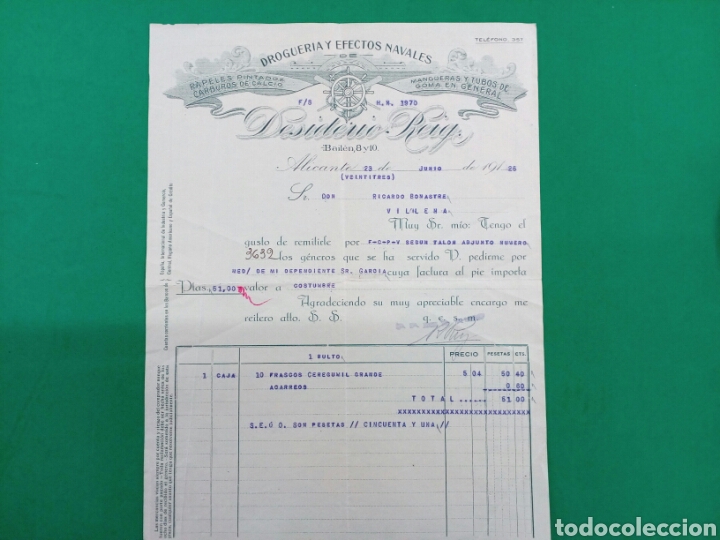 TELÉFONO 357
DROGUERIA Y EFECTOS NAVALES
DE
PAPELES PINTADOS
CARBUROS DE CALCIO
MANGUERAS Y TUBOS DE
GOMA EN GENERAL
F/8 R.N. 1970
Desiderio Reig.
Bailén, 8 y 10.
Alicante 23 de JUNIO de 1926
(VEINTITRES)
Sr. DON RICARDO BONASTRE.
VILLENA
Muy Sr. mío: Tengo el
gusto de remitirle por F-C-P-V SEGUN TALON ADJUNTO NUMERO
3632 los géneros que se ha servido V. pedirme por
MED/ DE MI DEPENDIENTE SR. GARCIA cuya factura al pie importa
Ptas. 51,00 valor a COSTUMBRE
Agradeciendo su muy apreciable encargo me
reitero atto. S. S. q. e. s. m.
1 BULTO. PRECIO PESETAS CTS.
1 CAJA 10 FRASCOS CEREGUMIL GRANDE 5 04 50 40
ACARREOS 0 60
TOTAL...... 51 00
XXXXXXXXXXXXXXXXXXXXXXXX
S.E.Ú O. SON PESETAS // CINCUENTA Y UNA //
todocoleccion